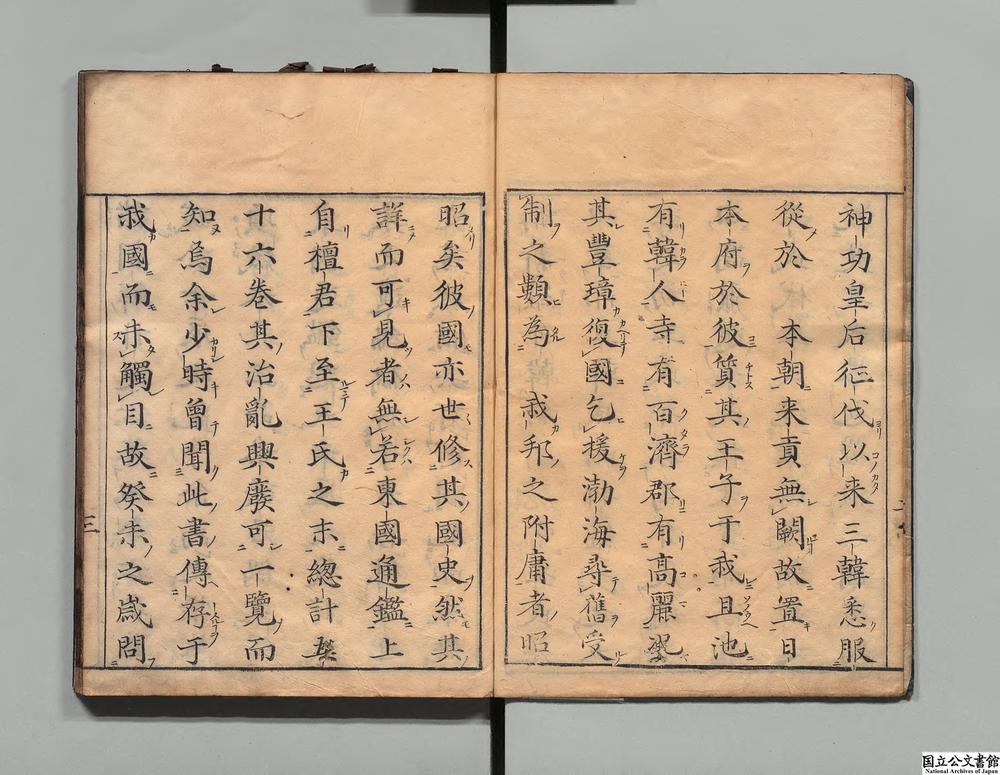 神功皇后征伐以来三韓悉服
從於 本朝来貢無闕故置日
本府於彼質其王子于我且池
有韓人寺有百濟郡有高麗
其豐璋復國乞援渤海尋舊受
制之類為我邦之附庸者昭
昭矣彼國亦世修其國史然其
詳而可見者無若東國通鑑上
自檀君下至王氏之末總計五
十六卷其治亂興廢可一覽而
知焉余少時曾聞此書傳存于
我國而未觸目故癸未之歳問
三
国立公文書館
National Archives of Japan